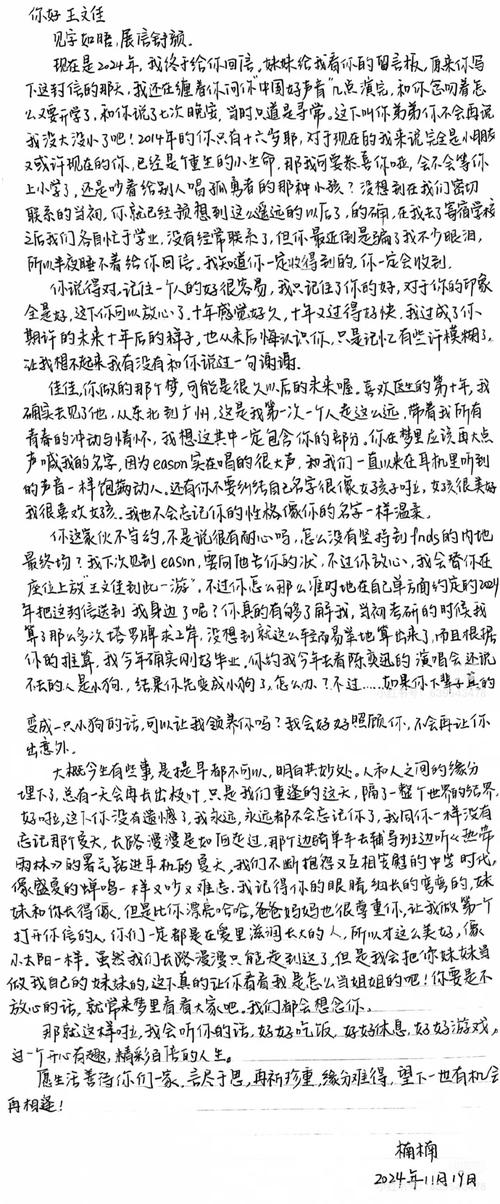 你好 王文佳
见字如晤,展信舒颜。
现在是2024年,我终于给你回信,妹妹给我看你的留言板,原来你写
下这封信的那天,我还在缠着你问你“中国好声音”几点演完,和你念叨着怎
么又要开学了,和你说了七次晚安,当时只道是寻常。这下叫你弟弟你不会再说
我没大没小了吧!2014年的你只有十六岁耶,对于现在的我来说完全是小朋友
又或许现在的你,已经是个重生的小生命,那我可要恭喜你啦,会不会等你
上小学了,还是吵着给别人唱孤勇者的那种小孩?没想到在我们密切
联系的当初,你就已经预想到这么遥远的以后了,的确,在我去了寄宿学校
之后我们各自忙于学业,没有经常联系了,但你最近倒是骗了我不少眼泪,
所以半夜睡不着给你回信。我知道你一定收得到的,你一定会收到。
你说得对,记住一个人的好很容易,我只记住了你的好,对于你的印象
全是好,这下你可以放心了,十年感觉好久,十年又过得好快,我过成了你
期许的未来十年后的样子,也从未后悔认识你,只是记忆有些许模糊了,
让我想不起来我有没有和你说过一句谢谢。
佳佳,你做的那个梦,可能是很久以后的未来喔。喜欢医生的第十年,我
确实去见了他,从东北到广州,这是我第一次一个人走这么远,带着我所有
青春的冲动与情怀,我想这其中一定包含你的部分。你在梦里应该再大点
声喊我的名字,因为eason实在唱的很大声,和我们一直以来在耳机里听到
的声音一样饱满动人。还有你不要纠结自己名字很像女孩子啦,女孩很美好
我很喜欢女孩。我也不会忘记你的性格,像你的名字一样温柔。
你这家伙不守约,不是说很有耐心吗,怎么没有坚持到fnds的内地
最终场?我下次见到eason,要向他告你的状,不过你放心,我会替你在
座位上放“王文佳到此一游”,不过你怎么那么准时地在自己单方面约定的2024
年把这封信送到我身边了呢?你真的有够了解我,当初考研的时候我
算了那么多次塔罗牌求上岸,没想到就这么轻而易举地算出来了,而且根据
你的推算,我今年确实刚好毕业,你约我今年去看陈奕迅的演唱会还说
不去的人是小狗,结果你先变成小狗了,怎么办?不过……如果你下辈子真的
变成一只小狗的话,可以让我领养你吗?我会好好照顾你,不会再让你
出意外。
大概今生有些事是提早都不可以,明白其妙处。人和人之间的缘分
埋下了,总有一天会再长出枝叶,只是我们重逢的这天,隔了一整个世界的结界,
好啦,这下你没有遗憾了,我永远,永远都不会忘记你了,我同你一样没有
忘记那个夏天,长路漫漫是如何走过,那个边骑单车去辅导班边听《热带
雨林》的暑气钻进耳机的夏天,我们不断抱怨又互相安慰的中学时代,
像盛夏的蝉鸣一样又吵又难忘。我记得你的眼睛,细长的弯弯的,妹
妹和你长得像,但是比你漂亮哈哈,爸爸妈妈也很尊重你,让我做第一个
打开你信的人,你们一定都是在爱里滋润长大的人,所以才这么美好,像
小太阳一样。虽然我们长路漫漫只能走到这了,但是我会把你妹妹当
做我自己的妹妹的,这下真的让你看看我是怎么当姐姐的吧!你要是不
放心的话,就常来梦里看看大家吧。我们都会想念你。
那就这样啦,我会听你的话,好好吃饭,好好休息,好好游戏,
过一个开心有趣,精彩百倍的人生。
愿生活善待你们一家,言尽于思,再祈珍重,缘分难得,望下一世有机会
再相逢!
楠楠
2024年11月19日